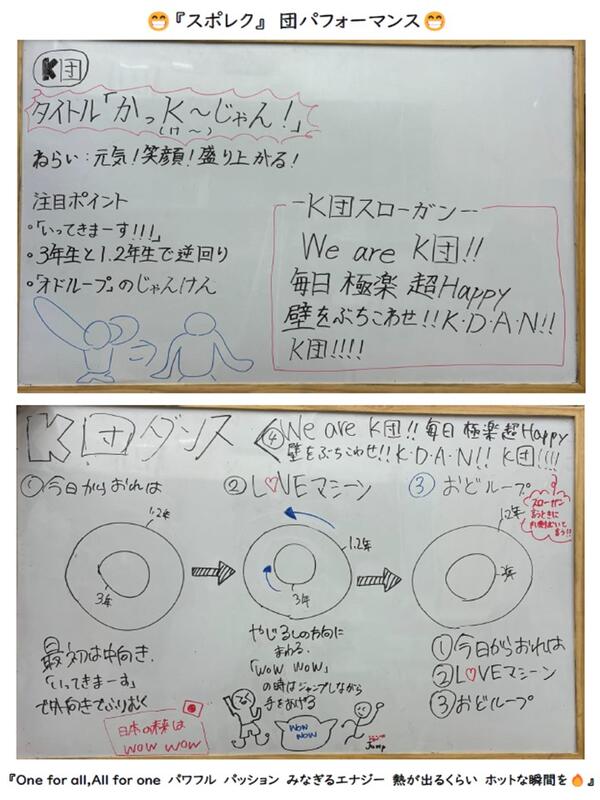 😁『スポレク』 団パフォーマンス😁
K団
タイトル「かっK〜じゃん!」
(け〜)
ねらい:元気!笑顔!盛り上がる!
注目ポイント
・「いってきまーす!!!」
・3年生と1.2年生で逆回り
・「オドループ」のじゃんけん
-K団スローガン-
We are K団!!
毎日 極楽 超Happy
壁をぶちこわせ!!K・D・A・N!!
K団!!!!
K団ダンス
④We are K団!! 毎日 極楽 超Happy
壁をぶちこわせ!!K・D・A・N!! K団!!!!
①今日からおれは
1.2年
3年
最初は中向き.
「いってきまーす」
で外向きでふりおく
②L♡VEマシーン
1.2年
3年
やじるしの方向に
まわる.
「WOW WOW」
の時はジャンプしながら
手をあげる
日本の未来は
WOW WOW
WOW
WOW
Jump
③おどループ
スローガン
言うときに
言う!!
1.2年
3年
①今日からおれは
②L♡VEマシーン
③おどループ
『One for all,All for one パワフル パッション みなぎるエナジー 熱が出るくらい ホットな瞬間を🔥』